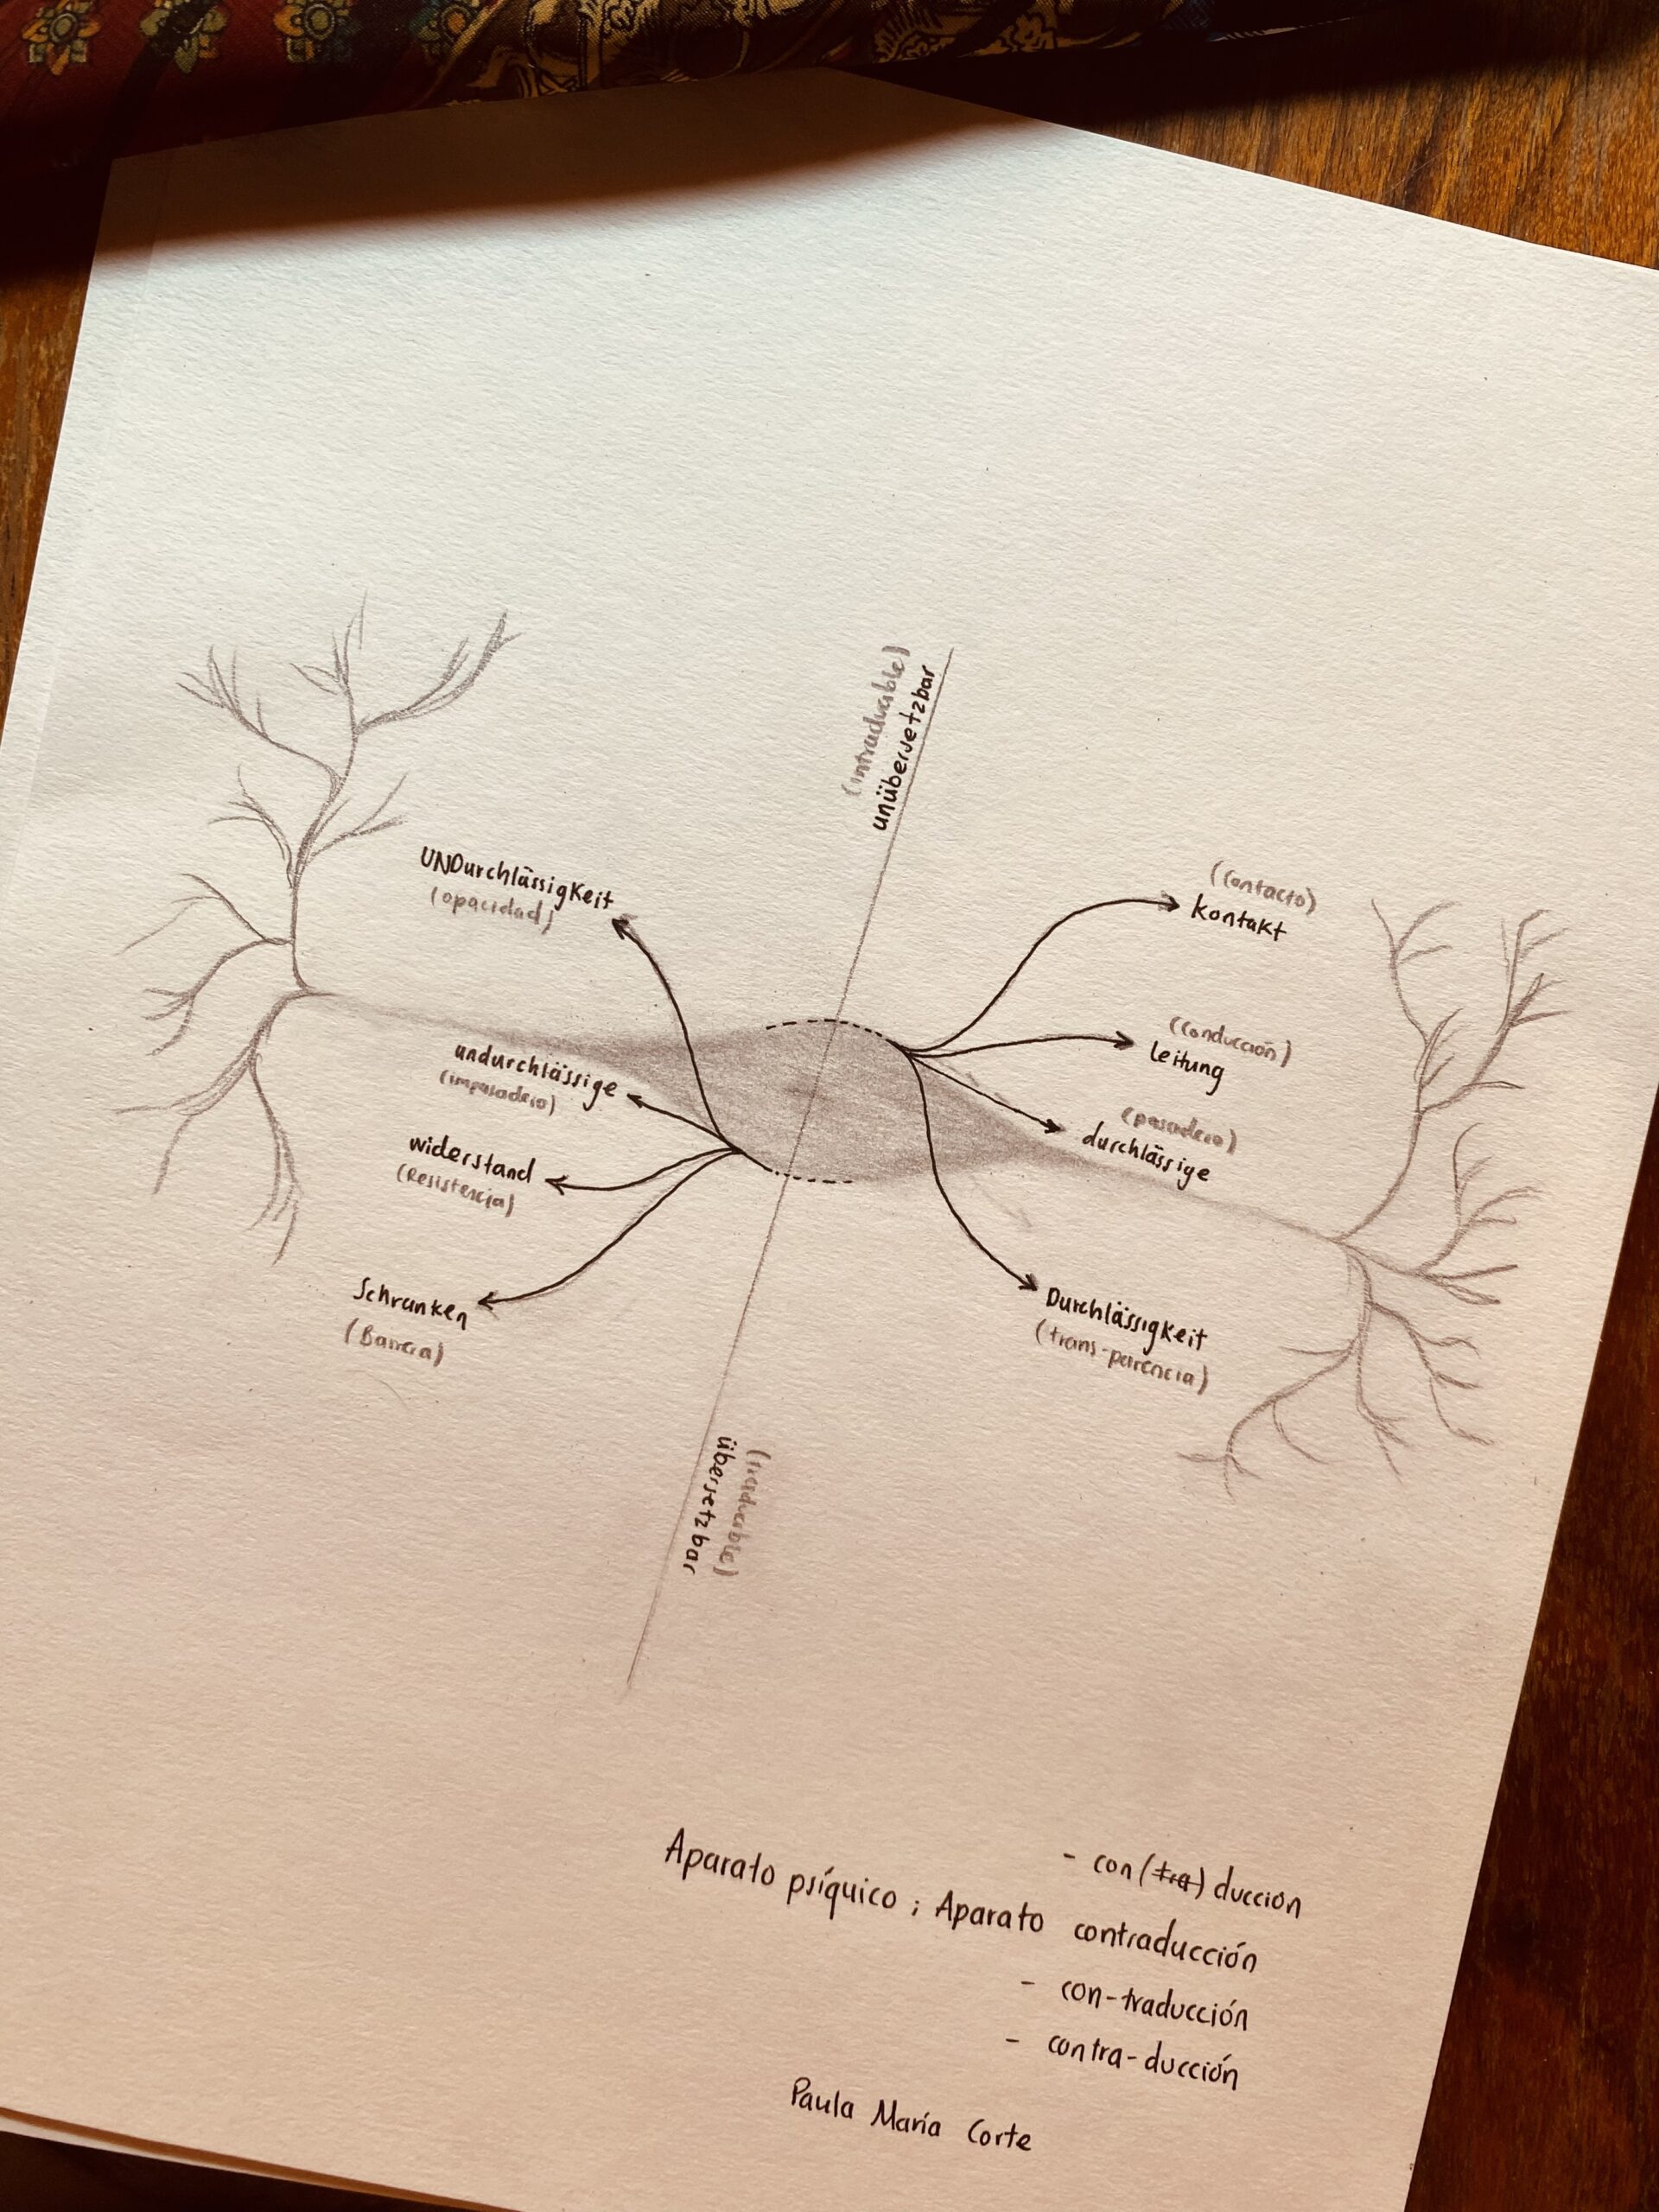 (intraducible)
unübersetzbar
UNDurchlässigkeit
(opacidad)
undurchlässige
(impasadero)
widerstand
(Resistencia)
Schranken
(Barrera)
(contacto)
kontakt
(conducción)
leitung
(pasadero)
durchlässige
Durchlässigkeit
(trans-parencia)
(traducible)
übersetzbar
- con(tra)ducción
Aparato psíquico ; Aparato contraducción
- con-traducción
- contra-ducción
Paula María Corte